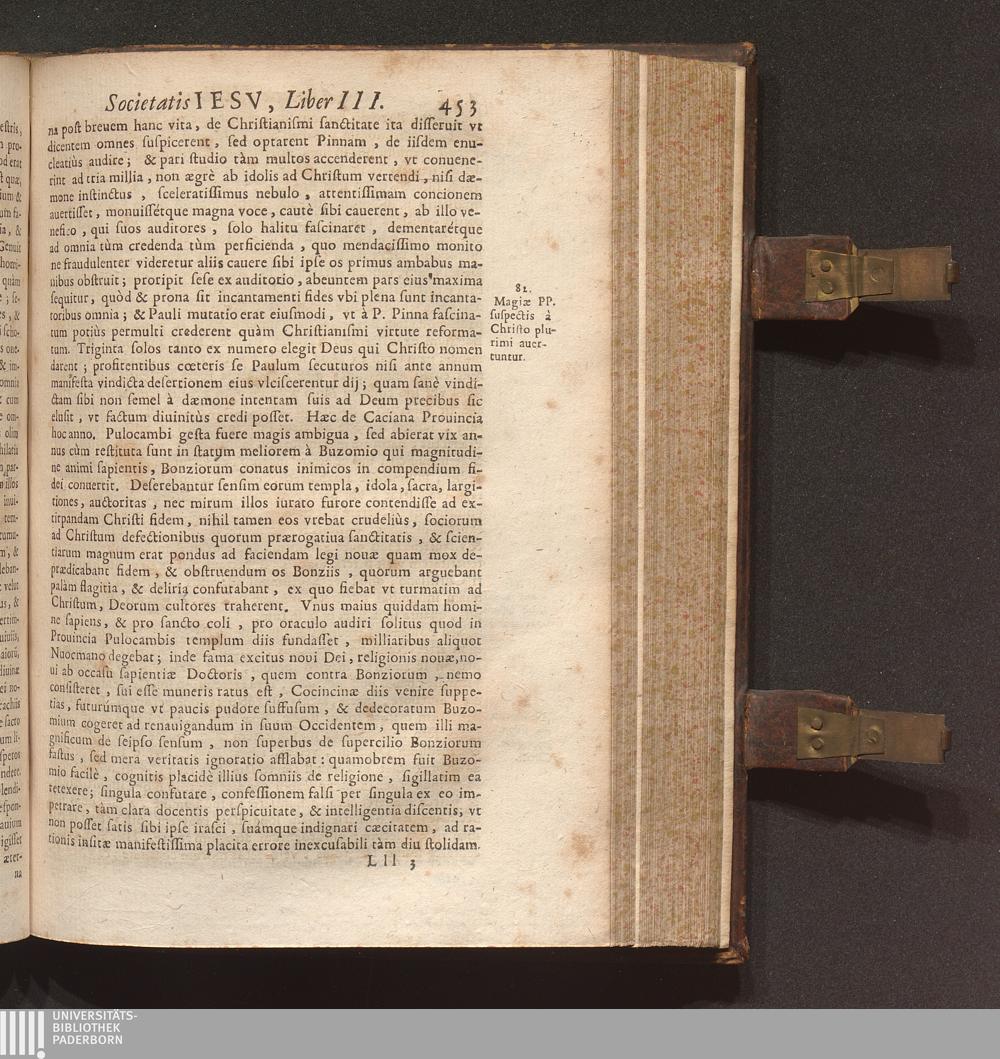 Societatis IESV, Liber III. 453
na post breuem hanc vita, de Christianismi sanctitate ita disseruit vt
dicentem omnes suspicerent, sed optarent Pinnam, de iisdem enu-
cleatiùs audire; & pari studio tàm multos accenderent, vt conuene-
rint ad tria millia, non ægrè ab idolis ad Christum vertendi, nisi dæ-
mone instinctus, sceleratissimus nebulo, attentissimam concionem
auertisset, monuissétque magna voce, cautè sibi cauerent, ab illo ve-
nefico, qui suos auditores, solo halitu fascinaret, dementarétque
ad omnia tùm credenda tùm perficienda, quo mendacissimo monito
ne fraudulenter videretur aliis cauere sibi ipse os primus ambabus ma-
nibus obstruit; proripit sese ex auditorio, abeuntem pars eius maxima
sequitur, quòd & prona sit incantamenti fides vbi plena sunt incanta-
toribus omnia; & Pauli mutatio erat eiusmodi, vt à P. Pinna fascina-
tum potiùs permulti crederent quàm Christianismi virtute reforma-
tum. Triginta solos tanto ex numero elegit Deus qui Christo nomen
darent; profitentibus cœteris se Paulum secuturos nisi ante annum
manifesta vindicta desertionem eius vlciscerentur dij; quam sanè vindi-
ctam sibi non semel à dæmone intentam suis ad Deum precibus sic
elusit, vt factum diuinitùs credi posset. Hæc de Caciana Prouincia
hoc anno. Pulocambi gesta fuere magis ambigua, sed abierat vix an-
nus cùm restituta sunt in statum meliorem à Buzomio qui magnitudi-
ne animi sapientis, Bonziorum conatus inimicos in compendium fi-
dei conuertit. Deserebantur sensim eorum templa, idola, sacra, largi-
tiones, auctoritas, nec mirum illos iurato furore contendisse ad ex-
tirpandam Christi fidem, nihil tamen eos vrebat crudeliùs, sociorum
ad Christum defectionibus quorum prærogatiua sanctitatis, & scien-
tiarum magnum erat pondus ad faciendam legi nouæ quam mox de-
prædicabant fidem, & obstruendum os Bonziis, quorum arguebant
palàm flagitia, & deliria confutabant, ex quo fiebat vt turmatim ad
Christum, Deorum cultores traherent. Vnus maius quiddam homi-
ne sapiens, & pro sancto coli, pro oraculo audiri solitus quod in
Prouincia Pulocambis templum diis fundasset, milliaribus aliquot
Nuocmano degebat; inde fama excitus noui Dei, religionis nouæ, no-
ui ab occasu sapientiæ Doctoris, quem contra Bonziorum, nemo
consisteret, sui esse muneris ratus est, Cocincinæ diis venire suppe-
tias, futurúmque vt paucis pudore suffusum, & dedecoratum Buzo-
mium cogeret ad renauigandum in suum Occidentem, quem illi ma-
gnificum de seipso sensum, non superbus de supercilio Bonziorum
fastus, sed mera veritatis ignoratio afflabat: quamobrem fuit Buzo-
mio facilè, cognitis placidè illius somniis de religione, sigillatim ea
retexere; singula confutare, confessionem falsi per singula ex eo im-
petrare, tàm clara docentis perspicuitate, & intelligentia discentis, vt
non posset satis sibi ipse irasci, suámque indignari cæcitatem, ad ra-
tionis insitæ manifestissima placita errore inexcusabili tàm diu stolidam.
Lll 3
82.
Magiæ PP.
suspectis à
Christo plu-
rimi auer-
tuntur.
UNIVERSITÄTS-
BIBLIOTHEK
PADERBORN